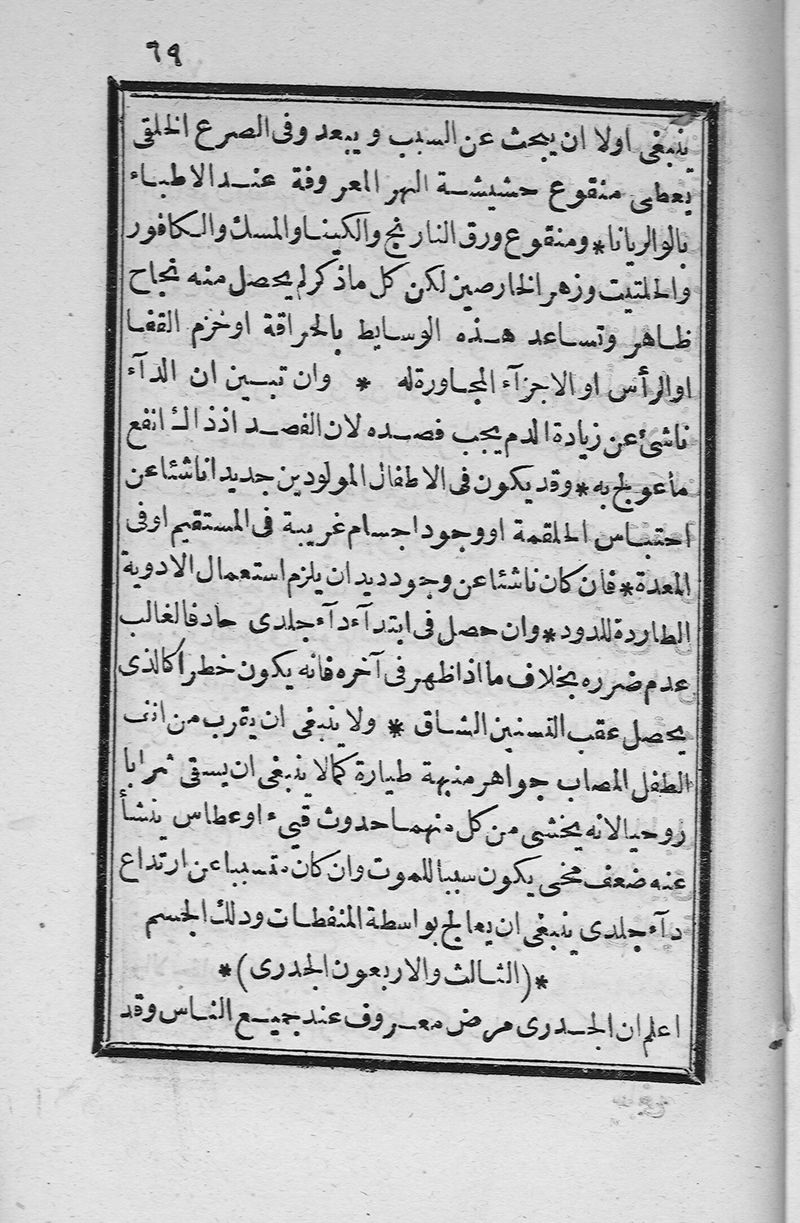 ٦٩
ينبغى اولا ان يبحث عن السبب ويبعد وفى الصرع الخلقى
يعطى منقوع حشيشة الهر المعروفة عند الاطباء
بالوالريانا * ومنقوع ورق النارنج والكينا والمسك والكافور
والحلتيت وزهر الخارصين لكن كل ماذكر لم يحصل منه نجاح
ظاهر وتساعد هذه الوسايط بالحراقة اوخزم القفا
اوالرأس او الاجزآء المجاورة له * وان تبين ان الدآء
ناشئ عن زيادة الدم يجب فصده لان الفصد اذ ذاك انفع
ماعولج به * وقد يكون فى الاطفال المولودين جديدا ناشئا عن
احتباس الملقمة او وجود اجسام غريبة فى المستقيم اوفى
المعدة * فان كان ناشئا عن وجود ديدان يلزم استعمال الادوية
الطاردة للدود * وان حصل فى ابتدآء دآء جلدى حاد فالغالب
عدم ضرره بخلاف ما اذا ظهر فى آخره فانه يكون خطرا كالذى
يحصل عقب التسنين الشاق * ولا ينبغى ان يقرب من انف
الطفل المصاب جواهر منبهة طيارة كما لا ينبغى ان يسقى شرابا
روحيا لانه يخشى من كل منهما حدوث قيء اوعطاس ينشأ
عنه ضعف مخى يكون سببا للموت وان كان متسببا عن ارتداع
دآء جلدى ينبغى ان يعالج بواسطة المنفطات ودلك الجسم
* (الثالث والاربعون الجدرى) *
اعلم ان الجدرى مرض معروف عند جميع الناس وقد